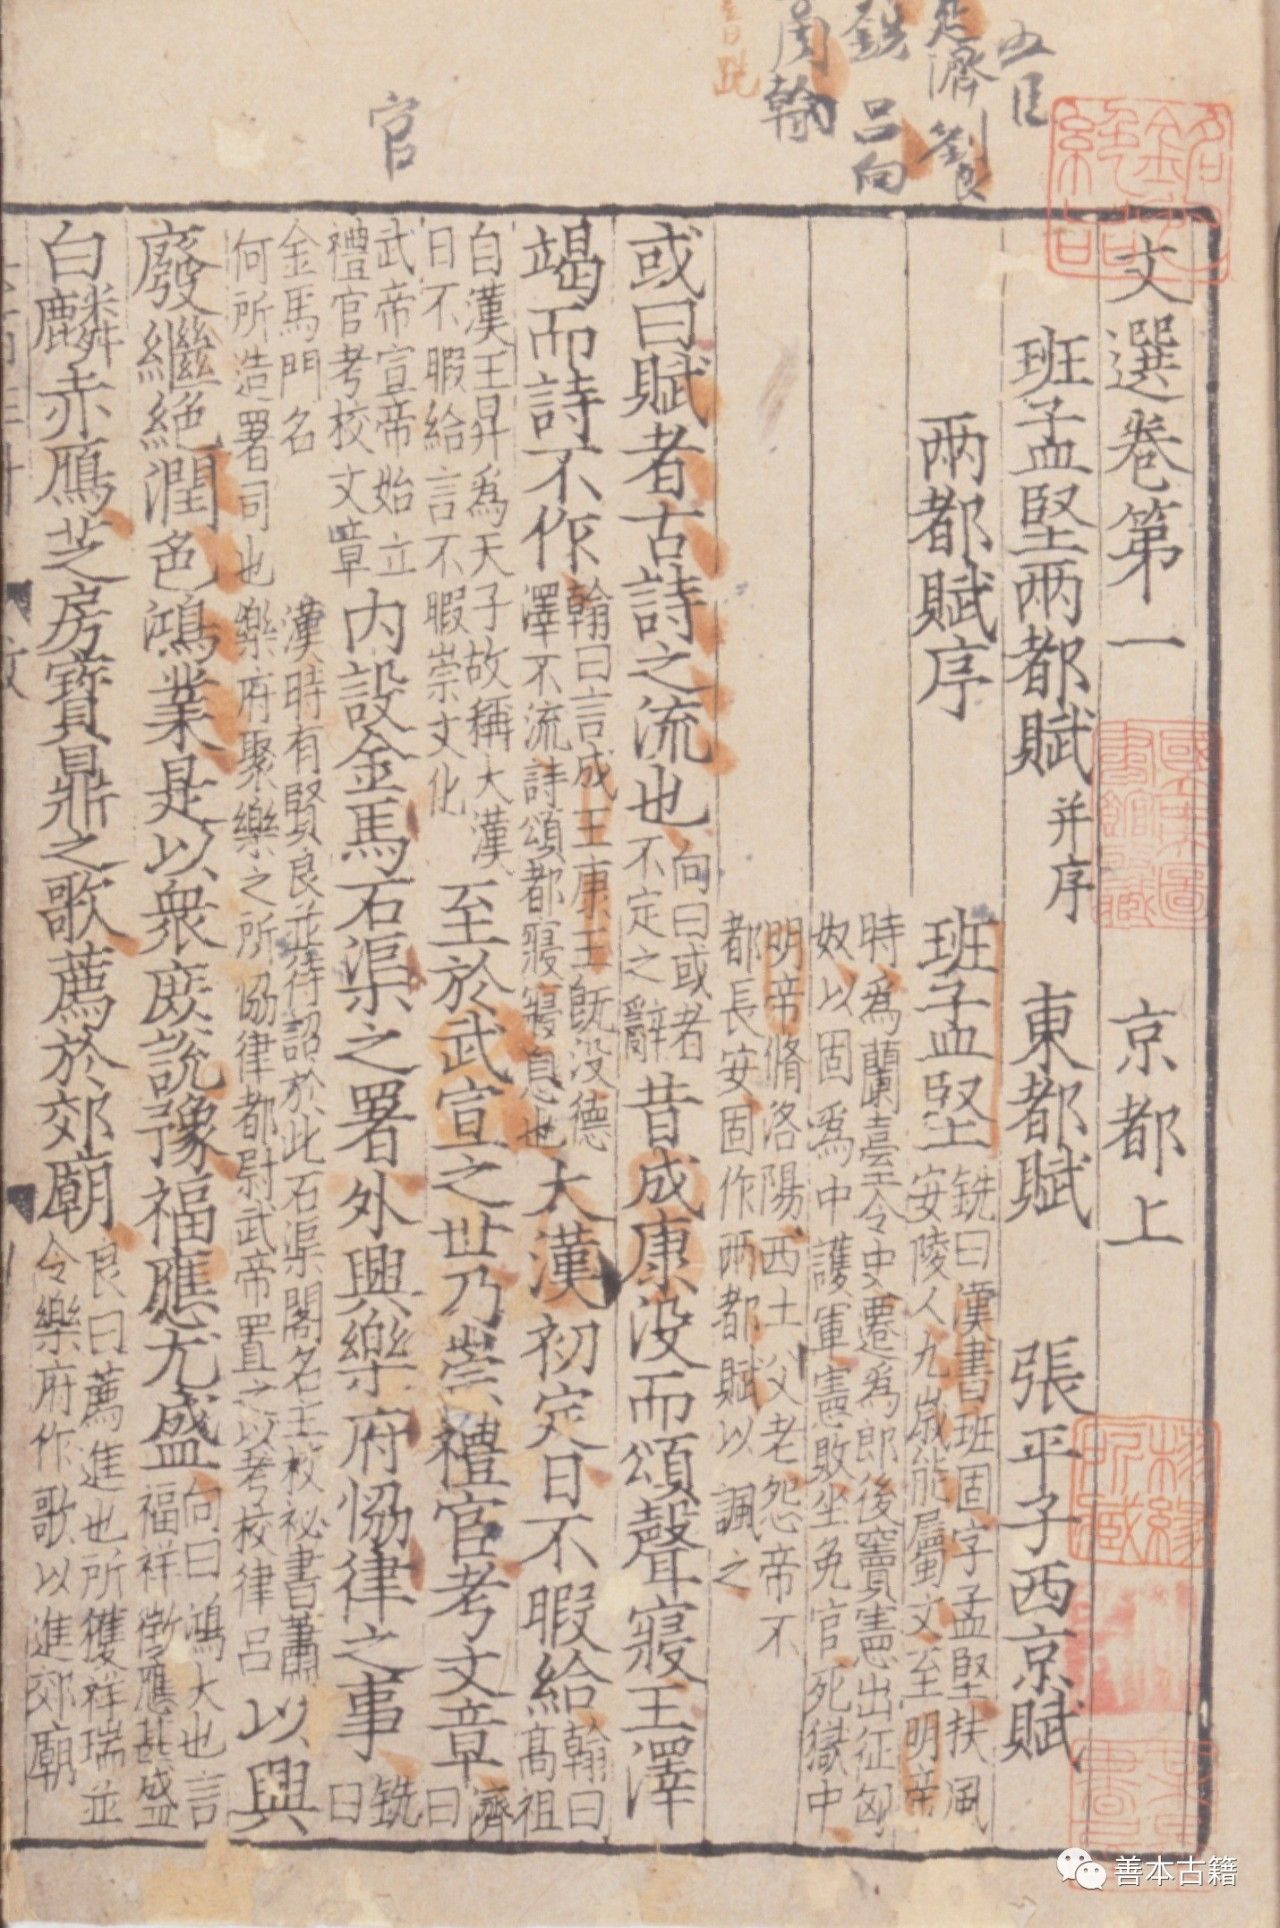 五臣
延濟 劉良
銑 呂向
周翰
官
文選卷第一 京都上
班孟堅兩都賦并序 東都賦 張平子西京賦
兩都賦序 班孟堅 銑曰漢書班固字孟堅扶風
安陵人九歲能屬文至明帝
時爲蘭臺令史遷爲郎後竇憲出征匈
奴以固爲中護軍憲敗坐免官死獄中
明帝脩洛陽西土父老怨帝不
都長安固作兩都賦以諷之
或曰賦者古詩之流也 向曰或者
不定之辭 昔成康没而頌聲寢王澤
竭而詩不作 翰曰言成王康王既没德
澤不流詩頌都寢寢息也 大漢初定日不暇給 翰曰
高祖
自漢王昇爲天子故稱大漢
日不暇給言不暇崇文化 至於武宣之世乃崇禮官考文章 濟
曰
武帝宣帝始立
禮官考校文章 内設金馬石渠之署外興樂府協律之事 銑
曰
金馬門名 漢時有賢良並待詔於此石渠閣名主校祕書蕭
何所造署司也樂府聚樂之所協律都尉武帝置之以考校律呂 以興
廢繼絶潤色鴻業是以衆庶說豫福應尤盛 向曰鴻大也言
福祥徵應甚盛
白麟赤鴈芝房寶鼎之歌薦於郊廟 良曰薦進也所獲祥瑞並
令樂府作歌以進郊廟
楊緣
所藏
善本古籍